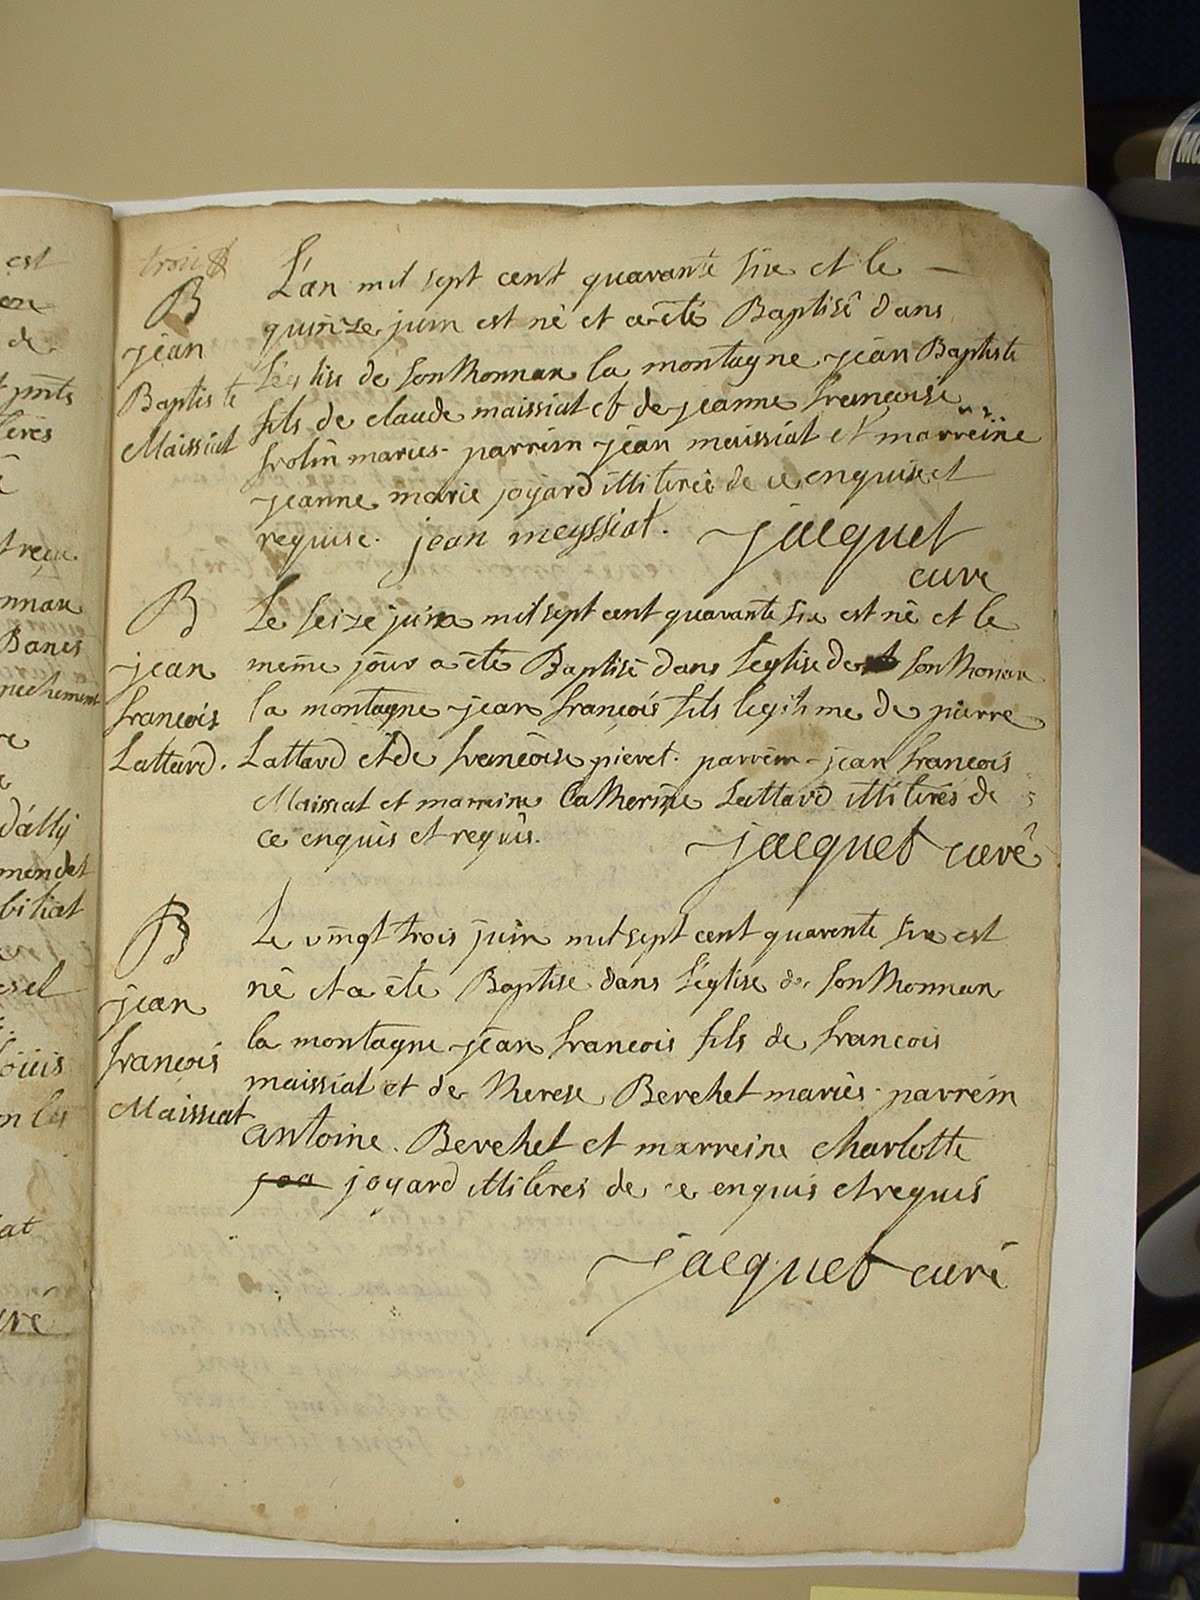 trois
B
jean
Baptiste
Maissiat
L'an mil sept cent quarante six et le
quinze juin est né et a été Baptisé dans
L'église de sonthonnax la montagne jean Baptiste
fils de claude maissiat et de jeanne francoise
frolin mariés. parrein jean maissiat et marreine
jeanne marie joyard illiterée de ce enquise et
requise. jean meyssiat. jacquet
curé
B
jean
francois
Lattard.
Le seize juin mil sept cent quarante six est né et le
meme jour a été Baptisé dans l'église de sonthonax
la montagne jean francois fils legitime de pierre
Lattard et de francoise pieret. parrein jean francois
Maissiat et marreine Catherine Lattard illiterés de
ce enquis et requis.
jacquet curé
B
jean
francois
Maissiat
Le vingt trois juin mil sept cent quarente six est
né et a été Baptisé dans l'église de sonthonnax
la montagne jean francois fils de francois
maissiat et de therese Berchet mariés. parrein
antoine Berchet et marreine charlotte
joa joyard illiteres de ce enquis et requis
jacquet curé
est
de
pnts
reçu
nnax
d'ally
biliat
curé